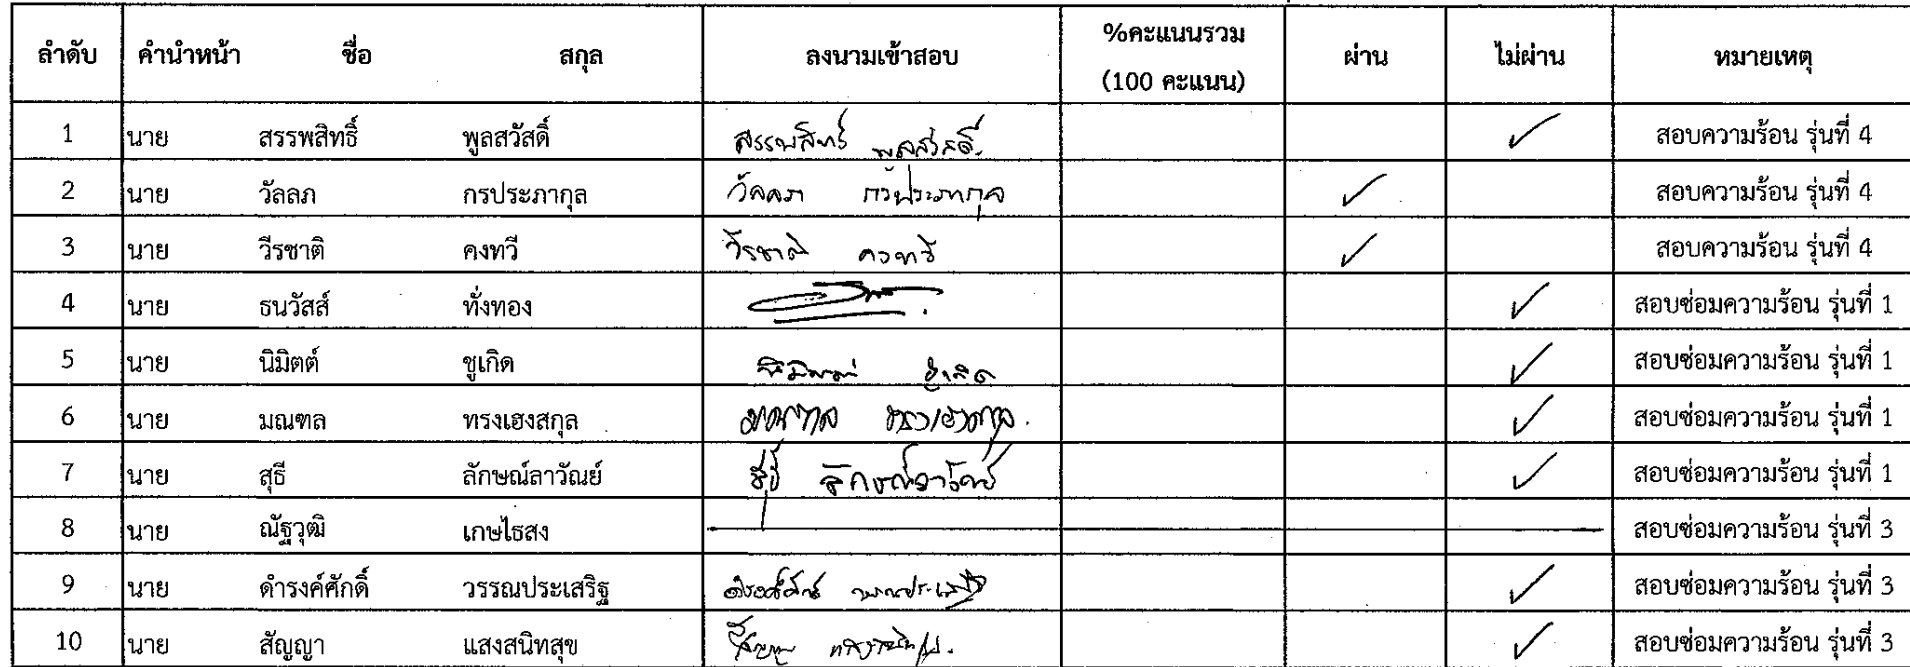 ลำดับ คำนำหน้า ชื่อ สกุล ลงนามเข้าสอบ %คะแนนรวม (100 คะแนน) ผ่าน ไม่ผ่าน หมายเหตุ
1 นาย สรรพสิทธิ์ พูลสวัสดิ์ สรรพสิทธิ์ พูลสวัสดิ์ ✓ สอบความร้อน รุ่นที่ 4
2 นาย วัลลภ กรประภากุล วัลลภ กรประภากุล ✓ สอบความร้อน รุ่นที่ 4
3 นาย วีรชาติ คงทวี วีรชาติ คงทวี ✓ สอบความร้อน รุ่นที่ 4
4 นาย ธนวัสส์ ทั่งทอง ✓ สอบซ่อมความร้อน รุ่นที่ 1
5 นาย นิมิตต์ ชูเกิด นิมิตต์ ชูเกิด ✓ สอบซ่อมความร้อน รุ่นที่ 1
6 นาย มณฑล ทรงเฮงสกุล มณฑล ทรงเฮงสกุล ✓ สอบซ่อมความร้อน รุ่นที่ 1
7 นาย สุธี ลักษณ์ลาวัณย์ สุธี ลักษณ์ลาวัณย์ ✓ สอบซ่อมความร้อน รุ่นที่ 1
8 นาย ณัฐวุฒิ เกษไธสง สอบซ่อมความร้อน รุ่นที่ 3
9 นาย ดำรงค์ศักดิ์ วรรณประเสริฐ ดำรงค์ศักดิ์ วรรณประเสริฐ ✓ สอบซ่อมความร้อน รุ่นที่ 3
10 นาย สัญญา แสงสนิทสุข สัญญา แสงสนิทสุข ✓ สอบซ่อมความร้อน รุ่นที่ 3